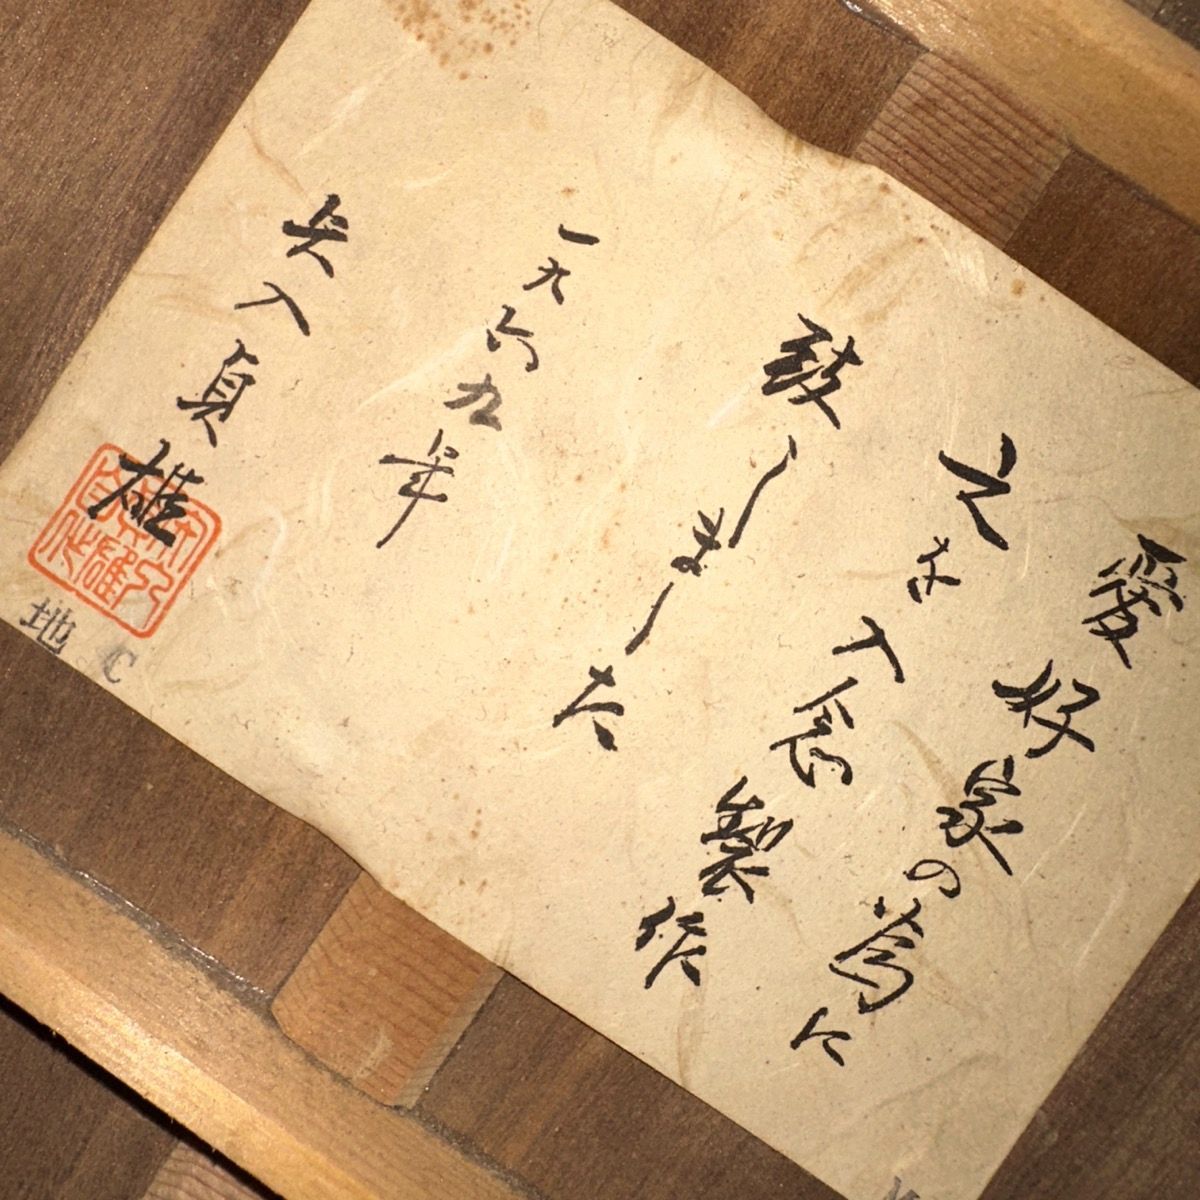 愛好家の為に
之を入念製作
致しました
一九六九年
矢入貞雄
地 C